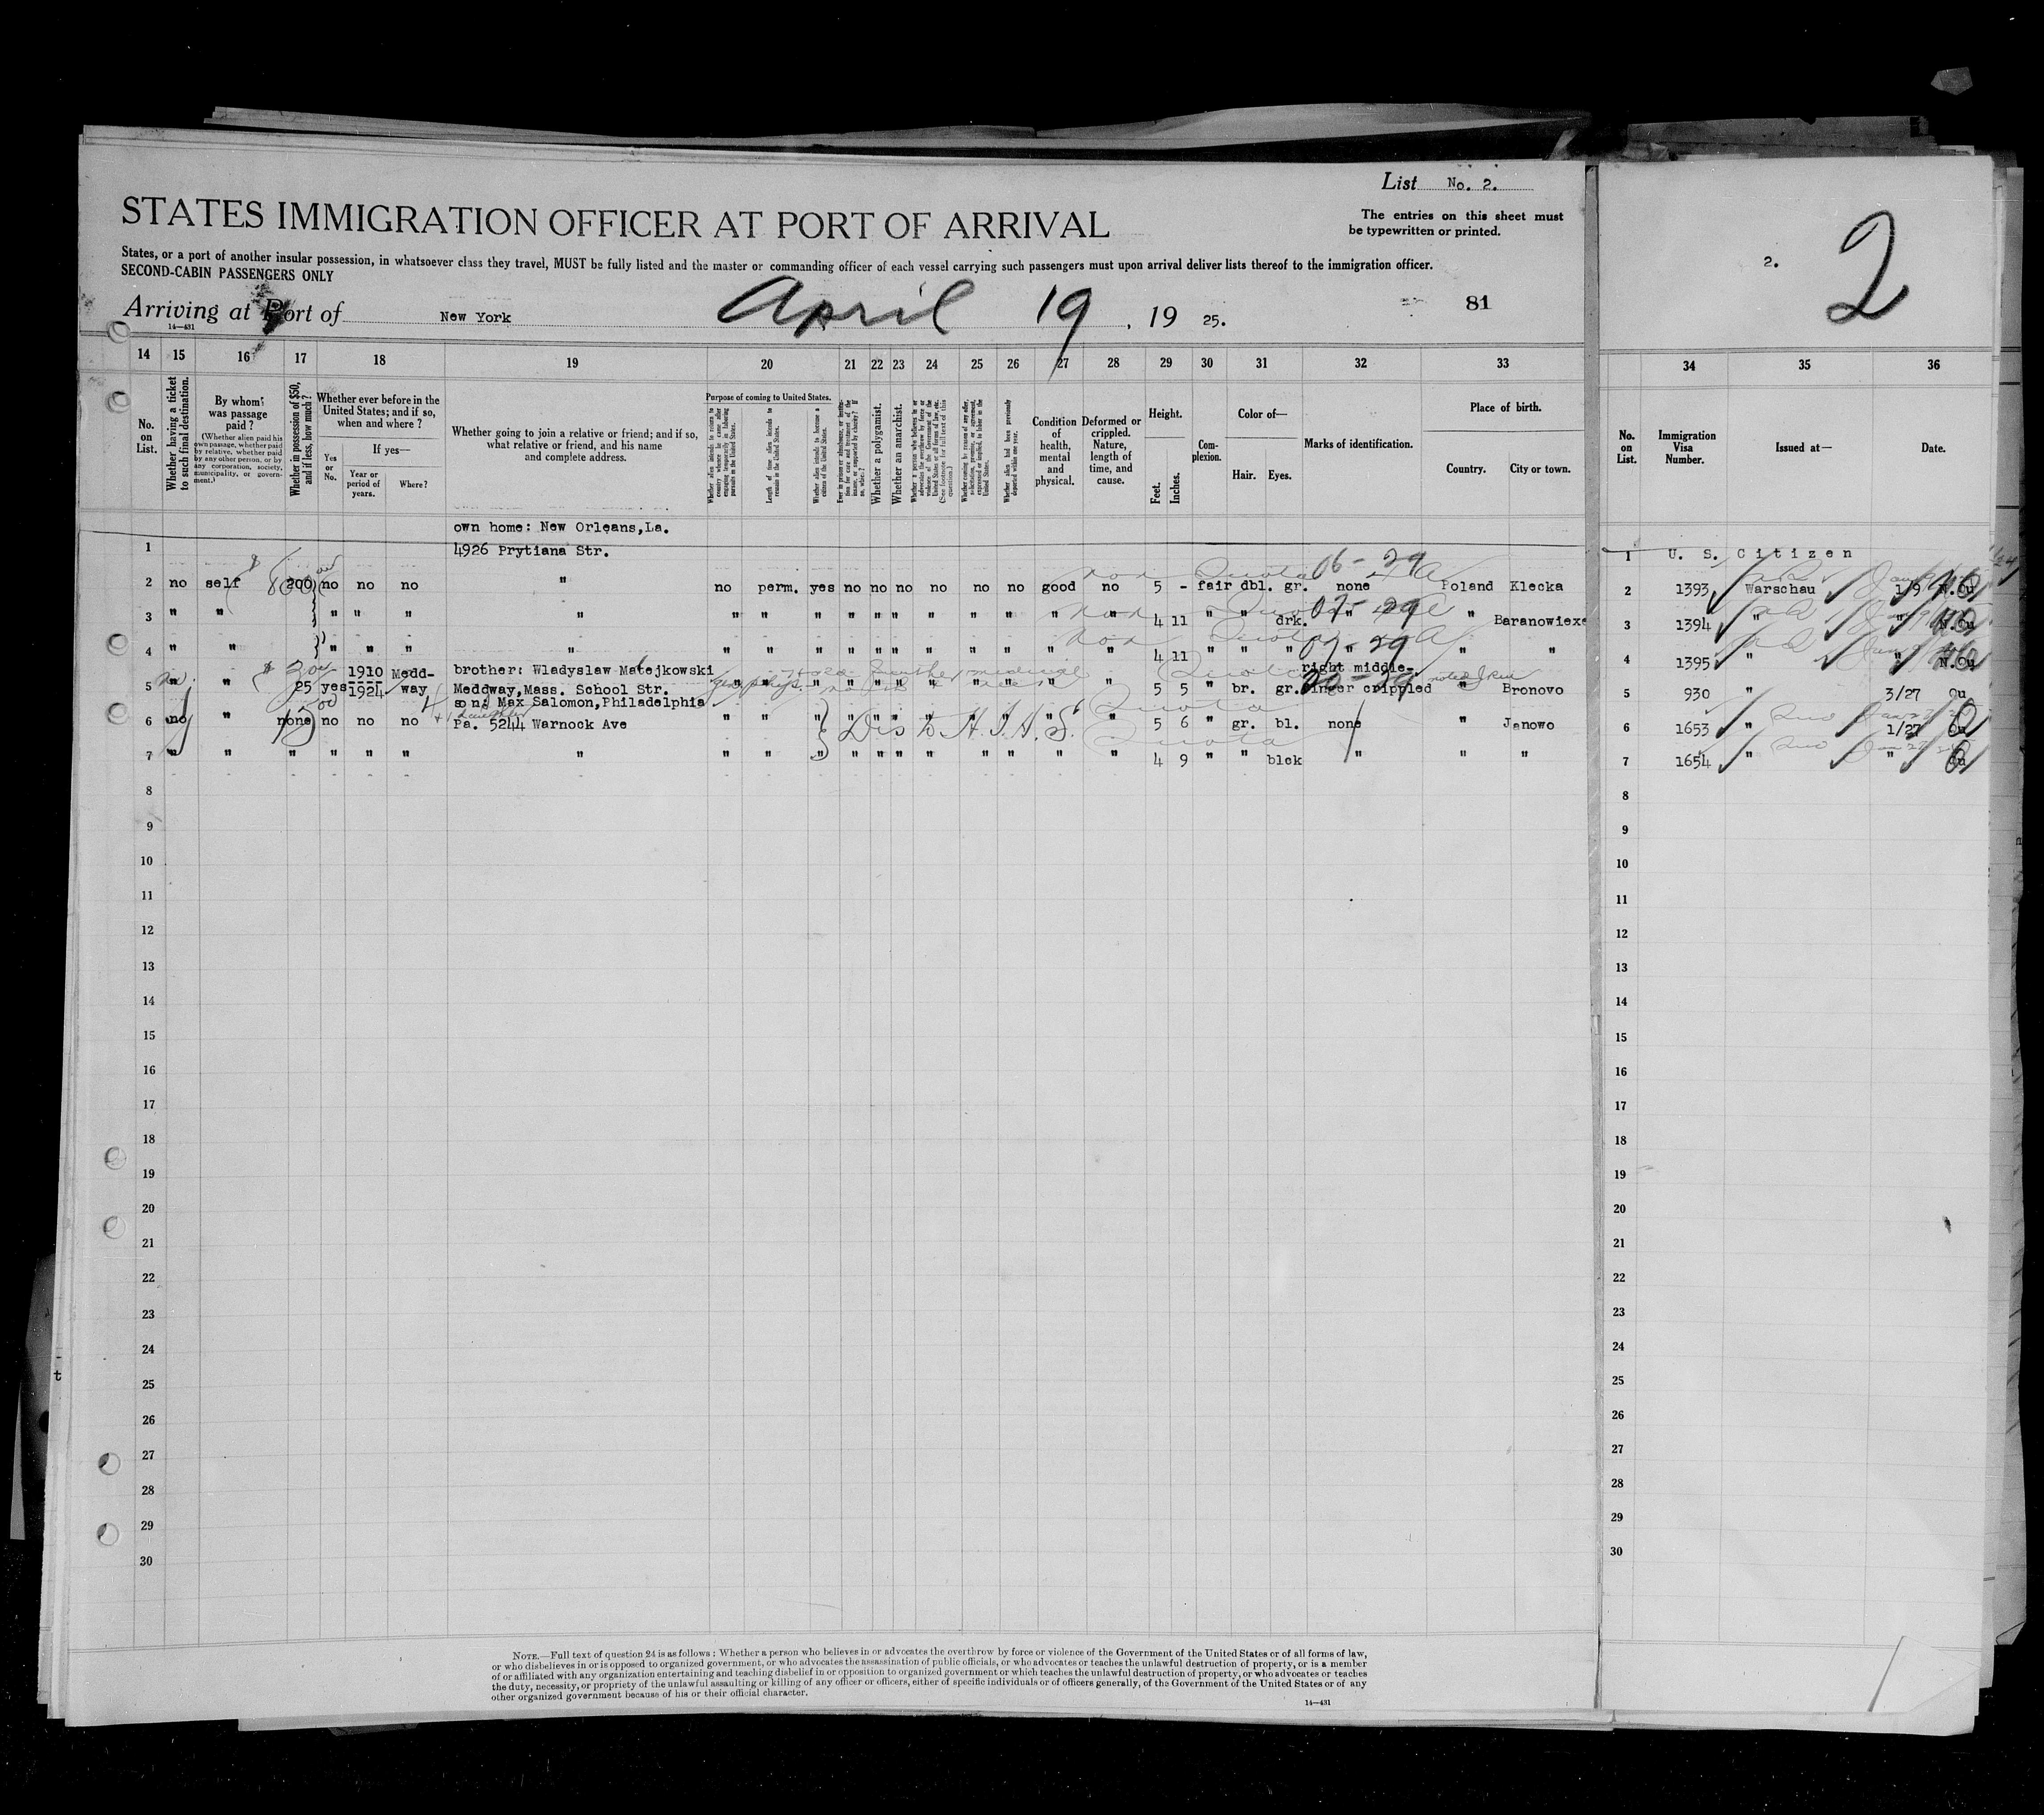 List No. 2.
STATES IMMIGRATION OFFICER AT PORT OF ARRIVAL
The entries on this sheet must
be typewritten or printed.
States, or a port of another insular possession, in whatsoever class they travel, MUST be fully listed and the master or commanding officer of each vessel carrying such passengers must upon arrival deliver lists thereof to the immigration officer.
SECOND-CABIN PASSENGERS ONLY
Arriving at Port of New York April 19, 19 25. 81
14—431
2. 2
14 15 16 17 18 19 20 21 22 23 24 25 26 27 28 29 30 31 32 33 34 35 36
No. on List.
Whether having a ticket to such final destination.
By whom was passage paid?
(Whether alien paid his own passage, whether paid by relative, whether paid by any other person, or by any corporation, society, municipality, or government.)
Whether in possession of $50, and if less, how much?
Whether ever before in the United States; and if so, when and where?
If yes—
Yes or No.
Year or period of years.
Where?
Whether going to join a relative or friend; and if so, what relative or friend, and his name and complete address.
Purpose of coming to United States.
Whether alien intends to return to country whence he came after engaging temporarily in laboring pursuits in the United States.
Length of time alien intends to remain in the United States.
Whether alien intends to become a citizen of the United States.
Whether a polygamist.
Whether an anarchist.
Condition of health, mental and physical.
Deformed or crippled. Nature, length of time, and cause.
Height.
Feet. Inches.
Complexion.
Color of—
Hair. Eyes.
Marks of identification.
Place of birth.
Country. City or town.
No. on List.
Immigration Visa Number.
Issued at—
Date.
own home: New Orleans,La.
1 4926 Prytiana Str. 1 U. S. Citizen
2 no self 200 no no no " no perm. yes no no no no no no good no 5 - fair dbl. gr. none Poland Klecka 2 1393 Warschau 1/9 N.Qu
3 " " " " " " " " " " " " " " " " 4 11 " " drk. " " Baranowiexe 3 1394 " " N.Qu
4 " " " " " " " " " " " " " " " " " " 4 11 " " " " " " 4 1395 " " N.Qu
brother: Wladyslaw Matejkowski
5 " " 25 yes 1910 1924 Meddway Meddway,Mass. School Str. " " " " " " " " " " " 5 5 " br. gr. right middle-finger crippled " Bronovo 5 930 " 3/27 Qu
son: Max Salomon,Philadelphia
6 no " none no no no Pa. 5244 Warnock Ave " " " " " " " " " " " 5 6 " gr. bl. none " Janowo 6 1653 " 1/27 Qu
7 " " " " " " " " " " " " " " " " " " 4 9 " " blck " " " 7 1654 " " Qu
8 8
9 9
10 10
11 11
12 12
13 13
14 14
15 15
16 16
17 17
18 18
19 19
20 20
21 21
22 22
23 23
24 24
25 25
26 26
27 27
28 28
29 29
30 30
NOTE.—Full text of question 24 is as follows: Whether a person who believes in or advocates the overthrow by force or violence of the Government of the United States or of all forms of law,
or who disbelieves in or is opposed to organized government, or who advocates the assassination of public officials, or who advocates or teaches the unlawful destruction of property, or is a member
of or affiliated with any organization entertaining and teaching disbelief in or opposition to organized government or which teaches the unlawful destruction of property, or who advocates or teaches
the duty, necessity, or propriety of the unlawful assaulting or killing of any officer or officers, either of specific individuals or of officers generally, of the Government of the United States or of any
other organized government because of his or their official character.
14—431